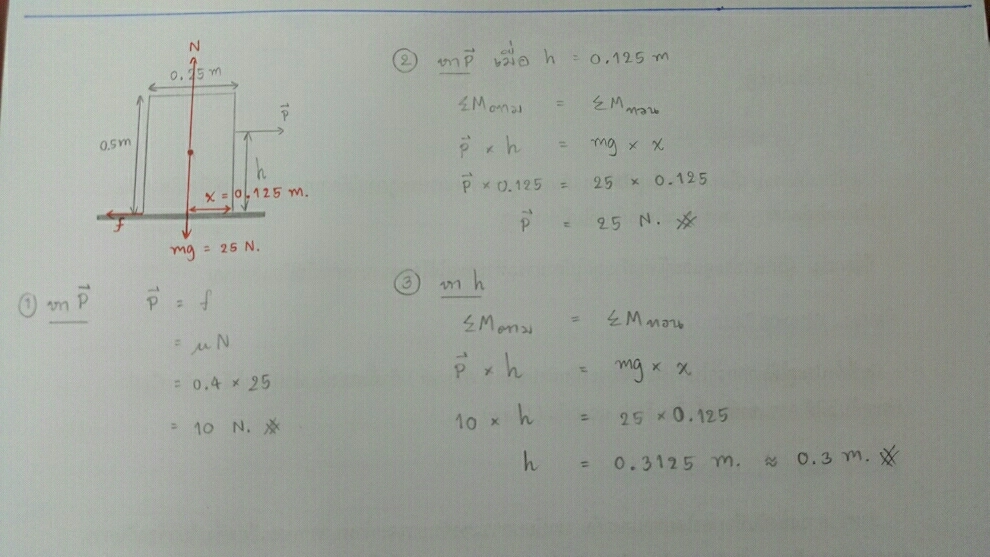 N
0.25 m
P⃗
0.5m
h
x = 0.125 m.
f
mg = 25 N.
① หา P⃗ P⃗ = f
= μN
= 0.4 × 25
= 10 N.
② หา P⃗ เมื่อ h = 0.125 m
ΣMตาม = ΣMทวน
P⃗ × h = mg × x
P⃗ × 0.125 = 25 × 0.125
P⃗ = 25 N.
③ หา h
ΣMตาม = ΣMทวน
P⃗ × h = mg × x
10 × h = 25 × 0.125
h = 0.3125 m. ≈ 0.3 m.